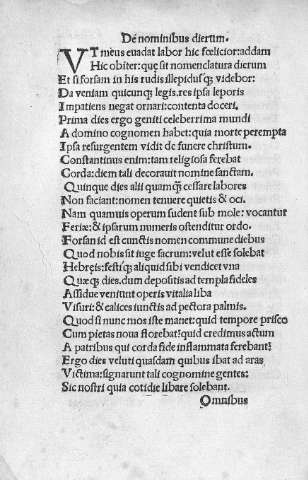 De nominibus dierum.
VT meus euadat labor hic fœlicior: addam
Hic obiter: que sit nomenclatura dierum
Et si forsam in his rudis illepidusq; videbor:
Da veniam quicunq; legis. res ipsa leporis
Impatiens negat ornari: contenta doceri.
Prima dies ergo geniti celeberrima mundi
A domino cognomen habet: quia morte perempta
Ipsa resurgentem vidit de funere christum.
Constantinus enim: tam religiosa ferebat
Corda: diem tali decorauit nomine sanctam.
Quinque dies alii quamq; cessare labores
Non faciant: nomen tenuere quietis & oci.
Nam quamuis operum sudent sub mole: vocantur
Feriæ: & ipsarum numeris ostenditur ordo.
Forsan id est cunctis nomen commune diebus
Quod nobis sit iuge sacrum: velut esse solebat
Hebreis: festiq; aliquid sibi vendicet vna
Quæq; dies. dum depositis ad templa fideles
Assidue veniunt operis vitalia liba
Visuri: & calices iunctis ad pectora palmis.
Quod si nunc mos iste manet: quid tempore prisco
Cum pietas noua flagrebat: quid credimus actum
A patribus qui corda fide inflammata ferebant?
Ergo dies veluti quasdam quibus ibat ad aras
Victima: signarunt tali cognomine gentes:
Sic nostri quia cotidie libare solebant.
Omnibus